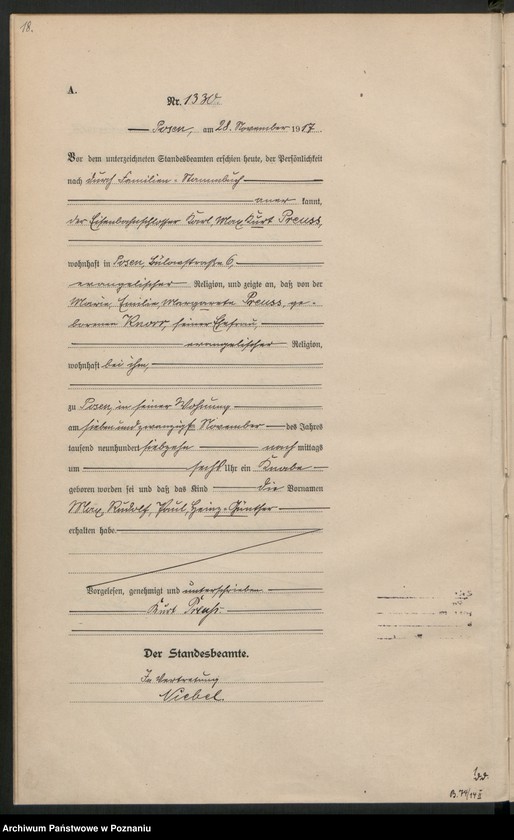 18.
A.
Nr. 1330.
Posen, am 28. November 1917.
Vor dem unterzeichneten Standesbeamten erschien heute, der Persönlichkeit
nach durch Familien-Stammbuch
aner kannt,
der Eisenbahnschlosser Karl, Max Kurt Preuss,
wohnhaft in Posen, Bülowstraße 6,
evangelischer Religion, und zeigte an, daß von der
Marie, Emilie, Margarete Preuss, ge-
borenen Knorr, seiner Ehefrau,
evangelischer Religion,
wohnhaft bei ihm,
zu Posen, in seiner Wohnung
am siebenundzwanzigst November des Jahres
tausend neunhundert siebzehn nach mittags
um sechs Uhr ein Knabe
geboren worden sei und daß das Kind die Vornamen
Max, Rudolf, Paul, Heinz-Günther
erhalten habe.
Vorgelesen, genehmigt und unterschrieben
Kurt Preuß.
Der Standesbeamte.
In Vertretung
Niebel.
B. 74/14 II
Archiwum Państwowe w Poznaniu